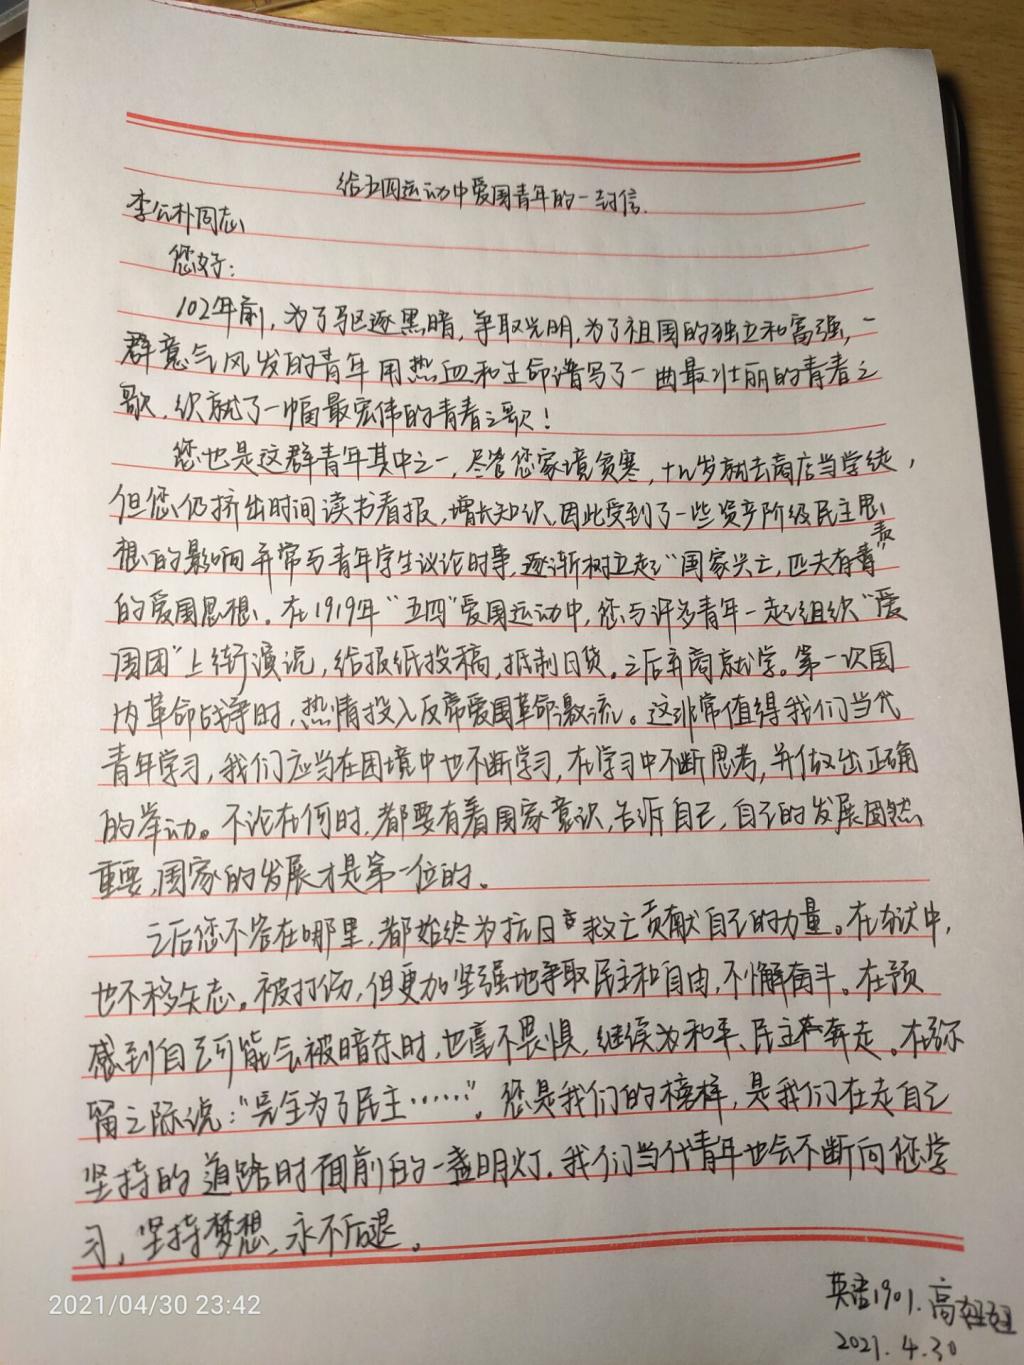 给五四运动中爱国青年的一封信.
李公朴同志
您好:
102年前,为了驱逐黑暗,争取光明,为了祖国的独立和富强,一
群意气风发的青年用热血和生命谱写了一曲最壮丽的青春之
歌,织就了一幅最宏伟的青春之歌!
您也是这群青年其中之一,尽管您家境贫寒,十几岁就去商店当学徒,
但您仍挤出时间读书看报,增长知识,因此受到了一些资产阶级民主思
想的影响,并常与青年学生议论时事,逐渐树立起“国家兴亡,匹夫有责”
的爱国思想。在1919年“五四”爱国运动中,您与许多青年一起组织“爱
国团”上街演说,给报纸投稿,抵制日货。之后弃商就学。第一次国
内革命战争时,热情投入反帝爱国革命激流。这非常值得我们当代
青年学习,我们应当在困境中也不断学习,在学习中不断思考,并做出正确
的举动。不论在何时,都要有着国家意识,告诉自己,自己的发展固然
重要,国家的发展才是第一位的。
之后您不管在哪里,都始终为抗日救亡贡献自己的力量。在狱中,
也不移矢志。被打伤,但更加坚强地争取民主和自由,不懈奋斗。在预
感到自己可能会被暗杀时,也毫不畏惧,继续为和平、民主奔走。在弥
留之际说:“完全为了民主……”。您是我们的榜样,是我们在走自己
坚持的道路时面前的一盏明灯.我们当代青年也会不断向您学
习,坚持梦想,永不后退。
英语1901.高
2021.4.30
2021/04/30 23:42